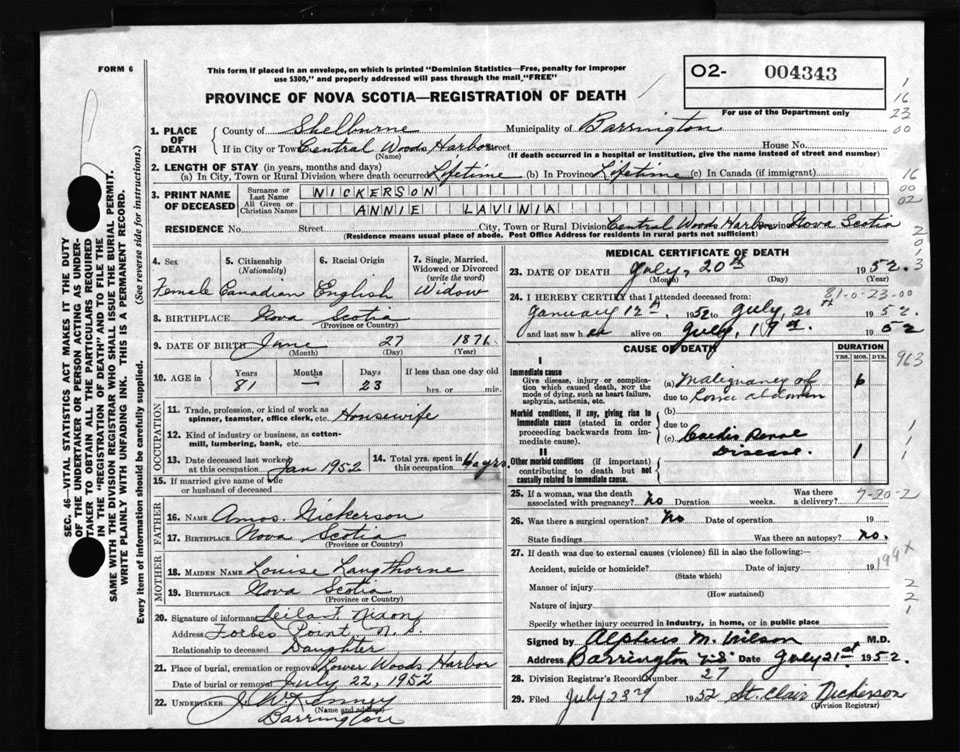 FORM 6
This form if placed in an envelope, on which is printed "Dominion Statistics—Free, penalty for improper
use $300," and properly addressed will pass through the mail "FREE"
PROVINCE OF NOVA SCOTIA—REGISTRATION OF DEATH
O2- 004343
For use of the Department only
1
16
23
00
1. PLACE OF DEATH
County of Shelburne Municipality of Barrington
If in City or Town Central Woods Harbor Street House No.
(Name) (If death occurred in a hospital or institution, give the name instead of street and number)
2. LENGTH OF STAY (in years, months and days)
(a) In City, Town or Rural Division where death occurred Lifetime (b) In Province Lifetime (c) In Canada (if immigrant)
16
00
02
3. PRINT NAME OF DECEASED
Surname or Last Name NICKERSON
All Given or Christian Names ANNIE LAVINIA
RESIDENCE No. Street City, Town or Rural Division Central Woods Harbor Province Nova Scotia
(Residence means usual place of abode. Post Office Address for residents in rural parts not sufficient)
SEC. 46—VITAL STATISTICS ACT MAKES IT THE DUTY
OF THE UNDERTAKER OR PERSON ACTING AS UNDER-
TAKER TO OBTAIN ALL THE PARTICULARS REQUIRED
IN THE "REGISTRATION OF DEATH" AND TO FILE THE
SAME WITH THE DIVISION REGISTRAR WHO SHALL ISSUE THE BURIAL PERMIT.
WRITE PLAINLY WITH UNFADING INK. THIS IS A PERMANENT RECORD.
Every item of information should be carefully supplied. (See reverse side for instructions.)
4. Sex
Female
5. Citizenship
(Nationality)
Canadian
6. Racial Origin
English
7. Single, Married,
Widowed or Divorced
(write the word)
Widow
8. BIRTHPLACE Nova Scotia
(Province or Country)
9. DATE OF BIRTH June 27 1871
(Month) (Day) (Year)
10. AGE in Years Months Days If less than one day old
81 — 23 hrs. or min.
OCCUPATION
11. Trade, profession, or kind of work as
spinner, teamster, office clerk, etc. Housewife
12. Kind of industry or business, as cotton-
mill, lumbering, bank, etc.
13. Date deceased last worked
at this occupation Jan 1952
14. Total yrs. spent in
this occupation 60 yrs.
15. If married give name of wife
or husband of deceased
FATHER
16. NAME Amos. Nickerson
17. BIRTHPLACE Nova Scotia
(Province or Country)
MOTHER
18. MAIDEN NAME Louise Langthorne
19. BIRTHPLACE Nova Scotia
(Province or Country)
20. Signature of informant Leila F. Nixon
Address Forbes Point, N.S.
Relationship to deceased Daughter
21. Place of burial, cremation or removal Lower Woods Harbor
Date of burial or removal July 22, 1952
22. UNDERTAKER J. W. Kenney
(Name and address)
Barrington
MEDICAL CERTIFICATE OF DEATH
23. DATE OF DEATH July, 20th 1952.
(Month) (Day) (Year)
24. I HEREBY CERTIFY that I attended deceased from: 81-0-23-00
January 12th, 1952 to July, 20th 1952.
and last saw her alive on July, 19th. 1952
CAUSE OF DEATH
DURATION
YRS. MOS. DYS.
I
Immediate cause
Give disease, injury or complica-
tion which caused death, NOT the
mode of dying, such as heart failure,
asphyxia, asthenia, etc.
(a) Malignancy of 6
due to Lower abdomen
Morbid conditions, if any, giving rise to
immediate cause (stated in order
proceeding backwards from im-
mediate cause).
(b)
due to
(c) Cardio Renal
II
Disease. 1 1
Other morbid conditions (if important)
contributing to death but not
causally related to immediate cause.
963
25. If a woman, was the death
associated with pregnancy? No Duration weeks. Was there
a delivery?
7-20-2
26. Was there a surgical operation? No Date of operation 19
State findings Was there an autopsy? No.
27. If death was due to external causes (violence) fill in also the following:—
Accident, suicide or homicide? Date of injury 19
(State which)
199x
Manner of injury
(How sustained)
Nature of injury
Specify whether injury occurred in industry, in home, or in public place
Signed by Alphus M. Wilson M.D.
Address Barrington N.S. Date July 21st 1952.
28. Division Registrar's Record Number 27
29. Filed July 23rd 1952 St. Clair Nickerson
(Division Registrar)